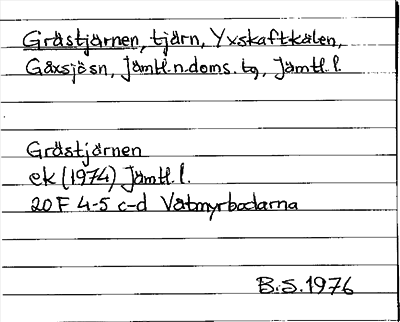 Grästjärnen, tjärn, Yxskaftkälen,
Gåxsjösn, Jämtl.n.doms.tg, Jämtl.l.
Grästjärnen
ek (1974) Jämtl.l.
20 F 4-5 c-d Våtmyrbodarna
B.S. 1976